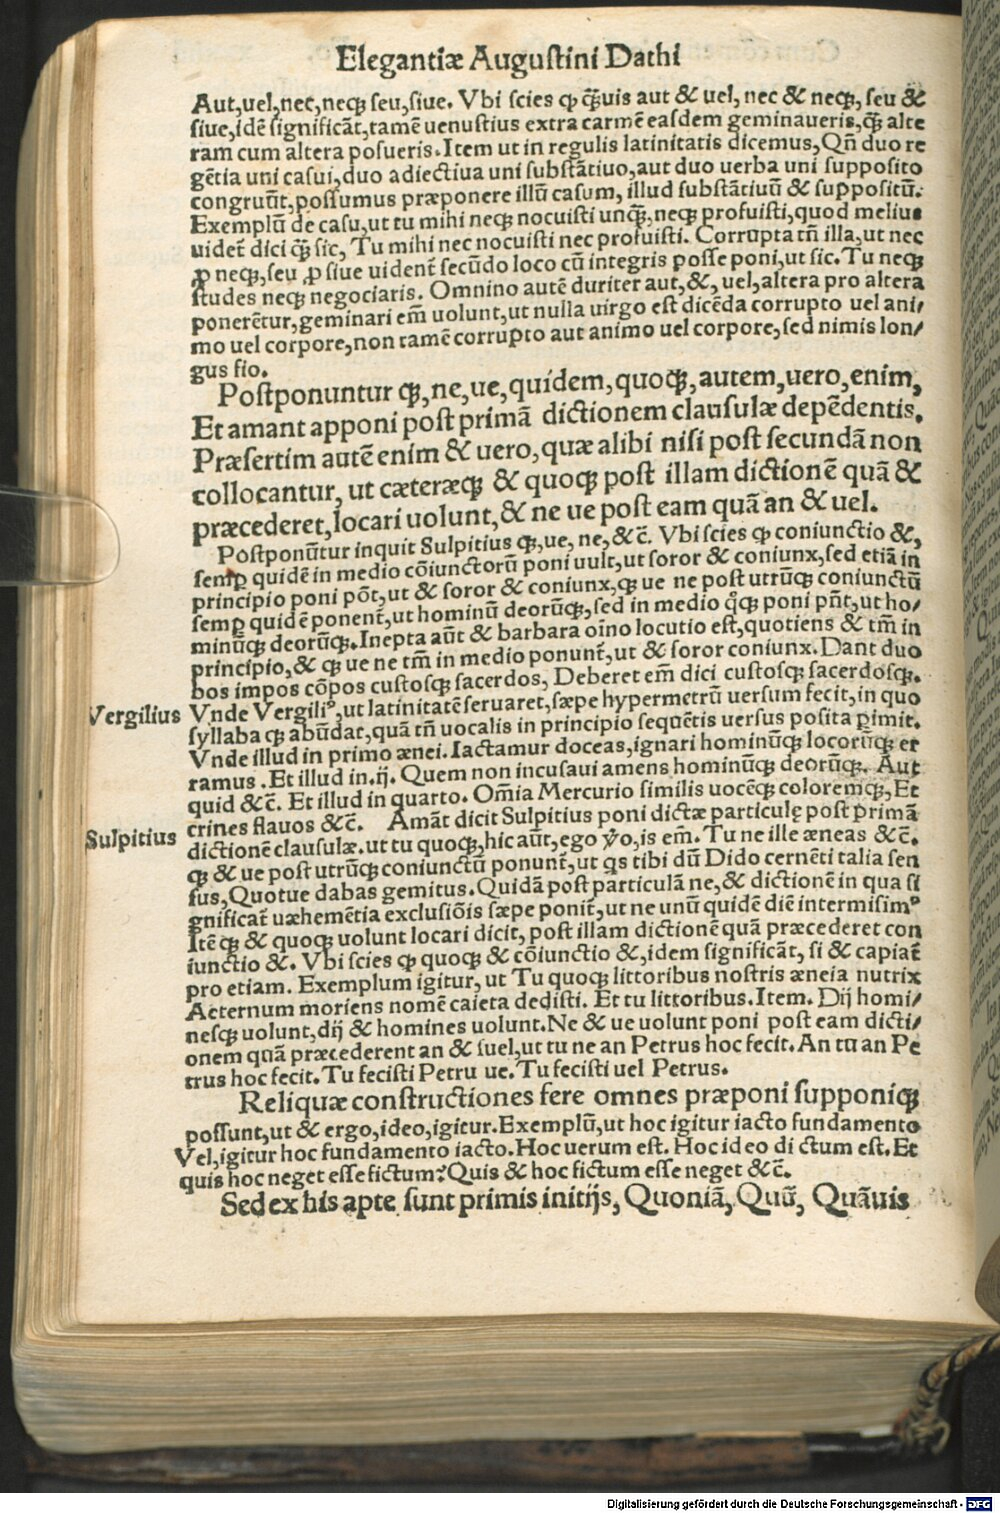 Elegantiæ Augustini Dathi
Aut,uel,nec,neqꝫ seu,siue. Vbi scies ꝙ ꝗ̃uis aut & uel, nec & neqꝫ, seu &
siue,idē significāt,tamē uenustius extra carmē easdem geminaueris,ꝗ̃ alte
ram cum altera posueris. Item ut in regulis latinitatis dicemus,Qñ duo re
gētia uni casui,duo adiectiua uni substātiuo,aut duo uerba uni supposito
congruūt,possumus præponere illū casum, illud substātiuū & suppositū.
Exemplū de casu,ut tu mihi neqꝫ nocuisti unꝗ̃,neqꝫ profuisti,quod melius
uidet̄ dici ꝗ̃ sic, Tu mihi nec nocuisti nec profuisti. Corrupta tñ illa,ut nec
ꝓ neqꝫ,seu ꝓ siue uident̄ secūdo loco cū integris posse poni,ut sic. Tu neqꝫ
studes neqꝫ negociaris. Omnino autē duriter aut,&, uel,altera pro altera
ponerētur,geminari em̄ uolunt,ut nulla uirgo est dicēda corrupto uel ani/
mo uel corpore,non tamē corrupto aut animo uel corpore,sed nimis lon/
gus fio.
Postponuntur qꝫ,ne,ue,quidem,quoqꝫ,autem,uero,enim,
Et amant apponi post primā dictionem clausulæ depēdentis.
Præsertim autē enim & uero,quæ alibi nisi post secundā non
collocantur, ut cæteræqꝫ & quoqꝫ post illam dictionē quā &
præcederet,locari uolunt,& ne ue post eam quā an & uel.
Postponūtur inquit Sulpitius qꝫ,ue, ne,&c̄. Vbi scies ꝙ coniunctio &,
semꝑ quidē in medio cōiunctorū poni uult,ut soror & coniunx,sed etiā in
principio poni pōt,ut & soror & coniunx,qꝫ ue ne post utrūqꝫ coniunctū
semꝑ quidē ponent̄,ut hominū deorūqꝫ,sed in medio ꝗ̊qꝫ poni pn̄t,ut ho/
minūqꝫ deorūqꝫ.Inepta aūt & barbara oīno locutio est,quotiens & tm̄ in
principio,& qꝫ ue ne tm̄ in medio ponunt̄,ut & soror coniunx. Dant duo
bos impos cōpos custosqꝫ sacerdos, Deberet em̄ dici custosqꝫ sacerdosqꝫ.
Vergilius Vnde Vergiliꝰ,ut latinitatē seruaret,sæpe hypermetrū uersum fecit,in quo
syllaba qꝫ abūdat,quā tñ uocalis in principio sequētis uersus posita ꝑimit.
Vnde illud in primo ænei. Iactamur doceas,ignari hominūqꝫ locorūqꝫ er
ramus . Et illud in.ij. Quem non incusaui amens hominūqꝫ deorūqꝫ. Aut
quid &c̄. Et illud in quarto. Om̄ia Mercurio similis uocēqꝫ coloremqꝫ,Et
crines flauos &c̄. Amāt dicit Sulpitius poni dictæ particulę post primā
Sulpitius dictionē clausulæ.ut tu quoqꝫ,hic aūt,ego v̊o,is em̄. Tu ne ille æneas &c̄.
qꝫ & ue post utrūqꝫ coniunctū ponunt̄,ut qs tibi dū Dido cernēti talia sen
sus,Quotue dabas gemitus. Quidā post particulā ne,& dictionē in qua si
gnificat̄ uæhemētia exclusiōis sæpe ponit̄,ut ne unū quidē diē intermisimꝰ
Itē qꝫ & quoqꝫ uolunt locari dicit, post illam dictionē quā præcederet con
iunctio &. Vbi scies ꝙ quoqꝫ & cōiunctio &,idem significāt, si & capiat̄
pro etiam. Exemplum igitur, ut Tu quoqꝫ littoribus nostris æneia nutrix
Aeternum moriens nomē caieta dedisti. Et tu littoribus. Item. Dij homi/
nesqꝫ uolunt,dij & homines uolunt. Ne & ue uolunt poni post eam dicti/
onem quā præcederent an & suel,ut tu ne an Petrus hoc fecit. An tu an Pe
trus hoc fecit. Tu fecisti Petru ue. Tu fecisti uel Petrus.
Reliquæ constructiones fere omnes præponi supponiqꝫ
possunt,ut & ergo,ideo,igitur.Exemplū,ut hoc igitur iacto fundamento
Vel,igitur hoc fundamento iacto. Hoc uerum est. Hoc ideo di ctum est. Et
quis hoc neget esse fictum? Quis & hoc fictum esse neget &c̄.
Sed ex his apte sunt primis initijs, Quoniā, Quū, Quāuis
Digitalisierung gefördert durch die Deutsche Forschungsgemeinschaft - DFG